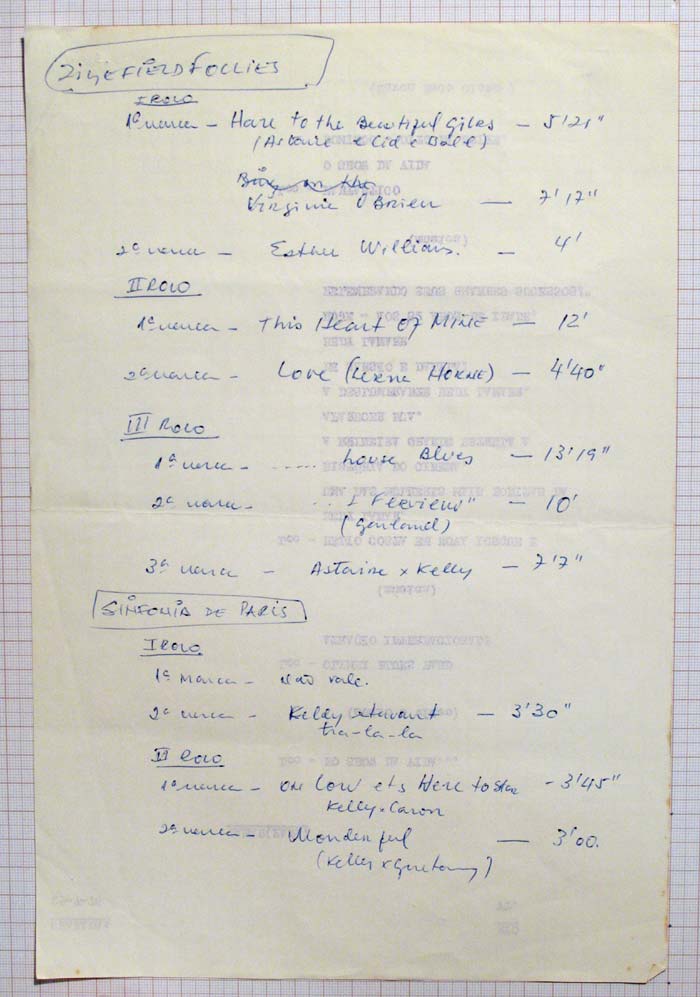 ZIGEFIELD FOLLIES
I ROLO
1ª marca - Hare to the Beautiful Girles - 5'21"
(Astaire e Cid e Ball)
Virginia O'Brien - 7'17"
2ª marca - Esther Williams. - 4'
II ROLO
1ª marca - This Heart of MINE - 12'
2ª marca - Love (Lerna HORNE) - 4'40"
III ROLO
1ª marca - ..... house Blues - 13'19"
2ª marca - ... I Ferview" - 10'
(Garland)
3ª marca - Astaire x Kelly - 7'7"
SINFONIA DE PARIS
I ROLO
1ª marca - Não vale.
2ª marca - Kelly - 3'30"
tra-la-la
II ROLO
1ª marca - OH LOW ets Here to - 3'45"
Kelly x Caron
2ª marca - Wonderful - 3'00.
(Kelly x Guetary)